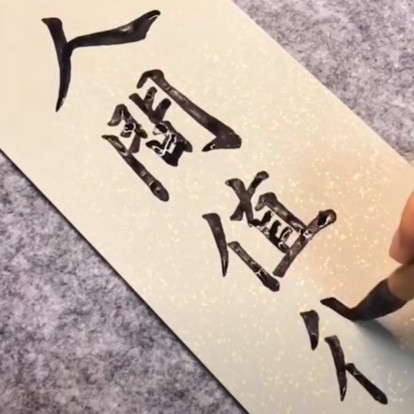 人間值